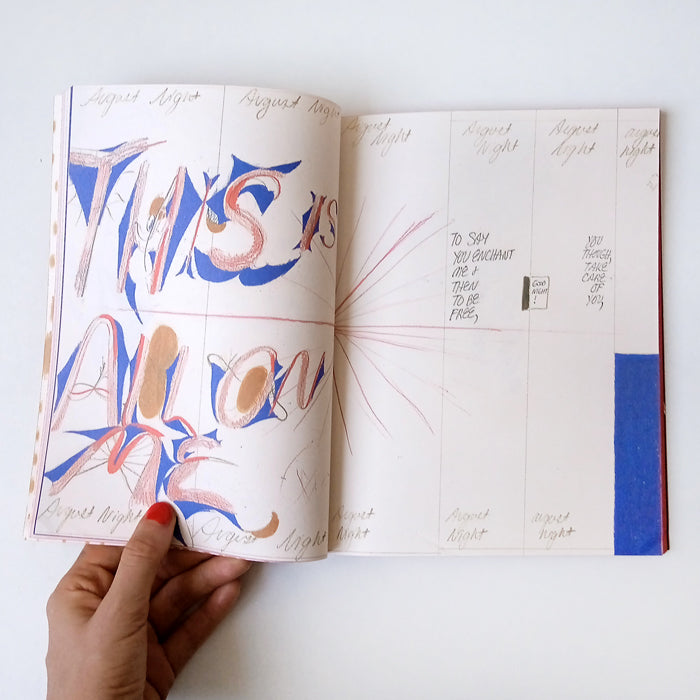 August Night
August Night
THIS IS
ALL ON
ME
August Night
August
Night
August
Night
August
Night
August
Night
august
night
TO SAY
YOU ENCHANT
ME &
THEN
TO BE
FREE,
GOOD
NIGHT
!
YOU
THOUGH,
TAKE
CARE
OF
YOU,
August
Night
August
Night
august
night